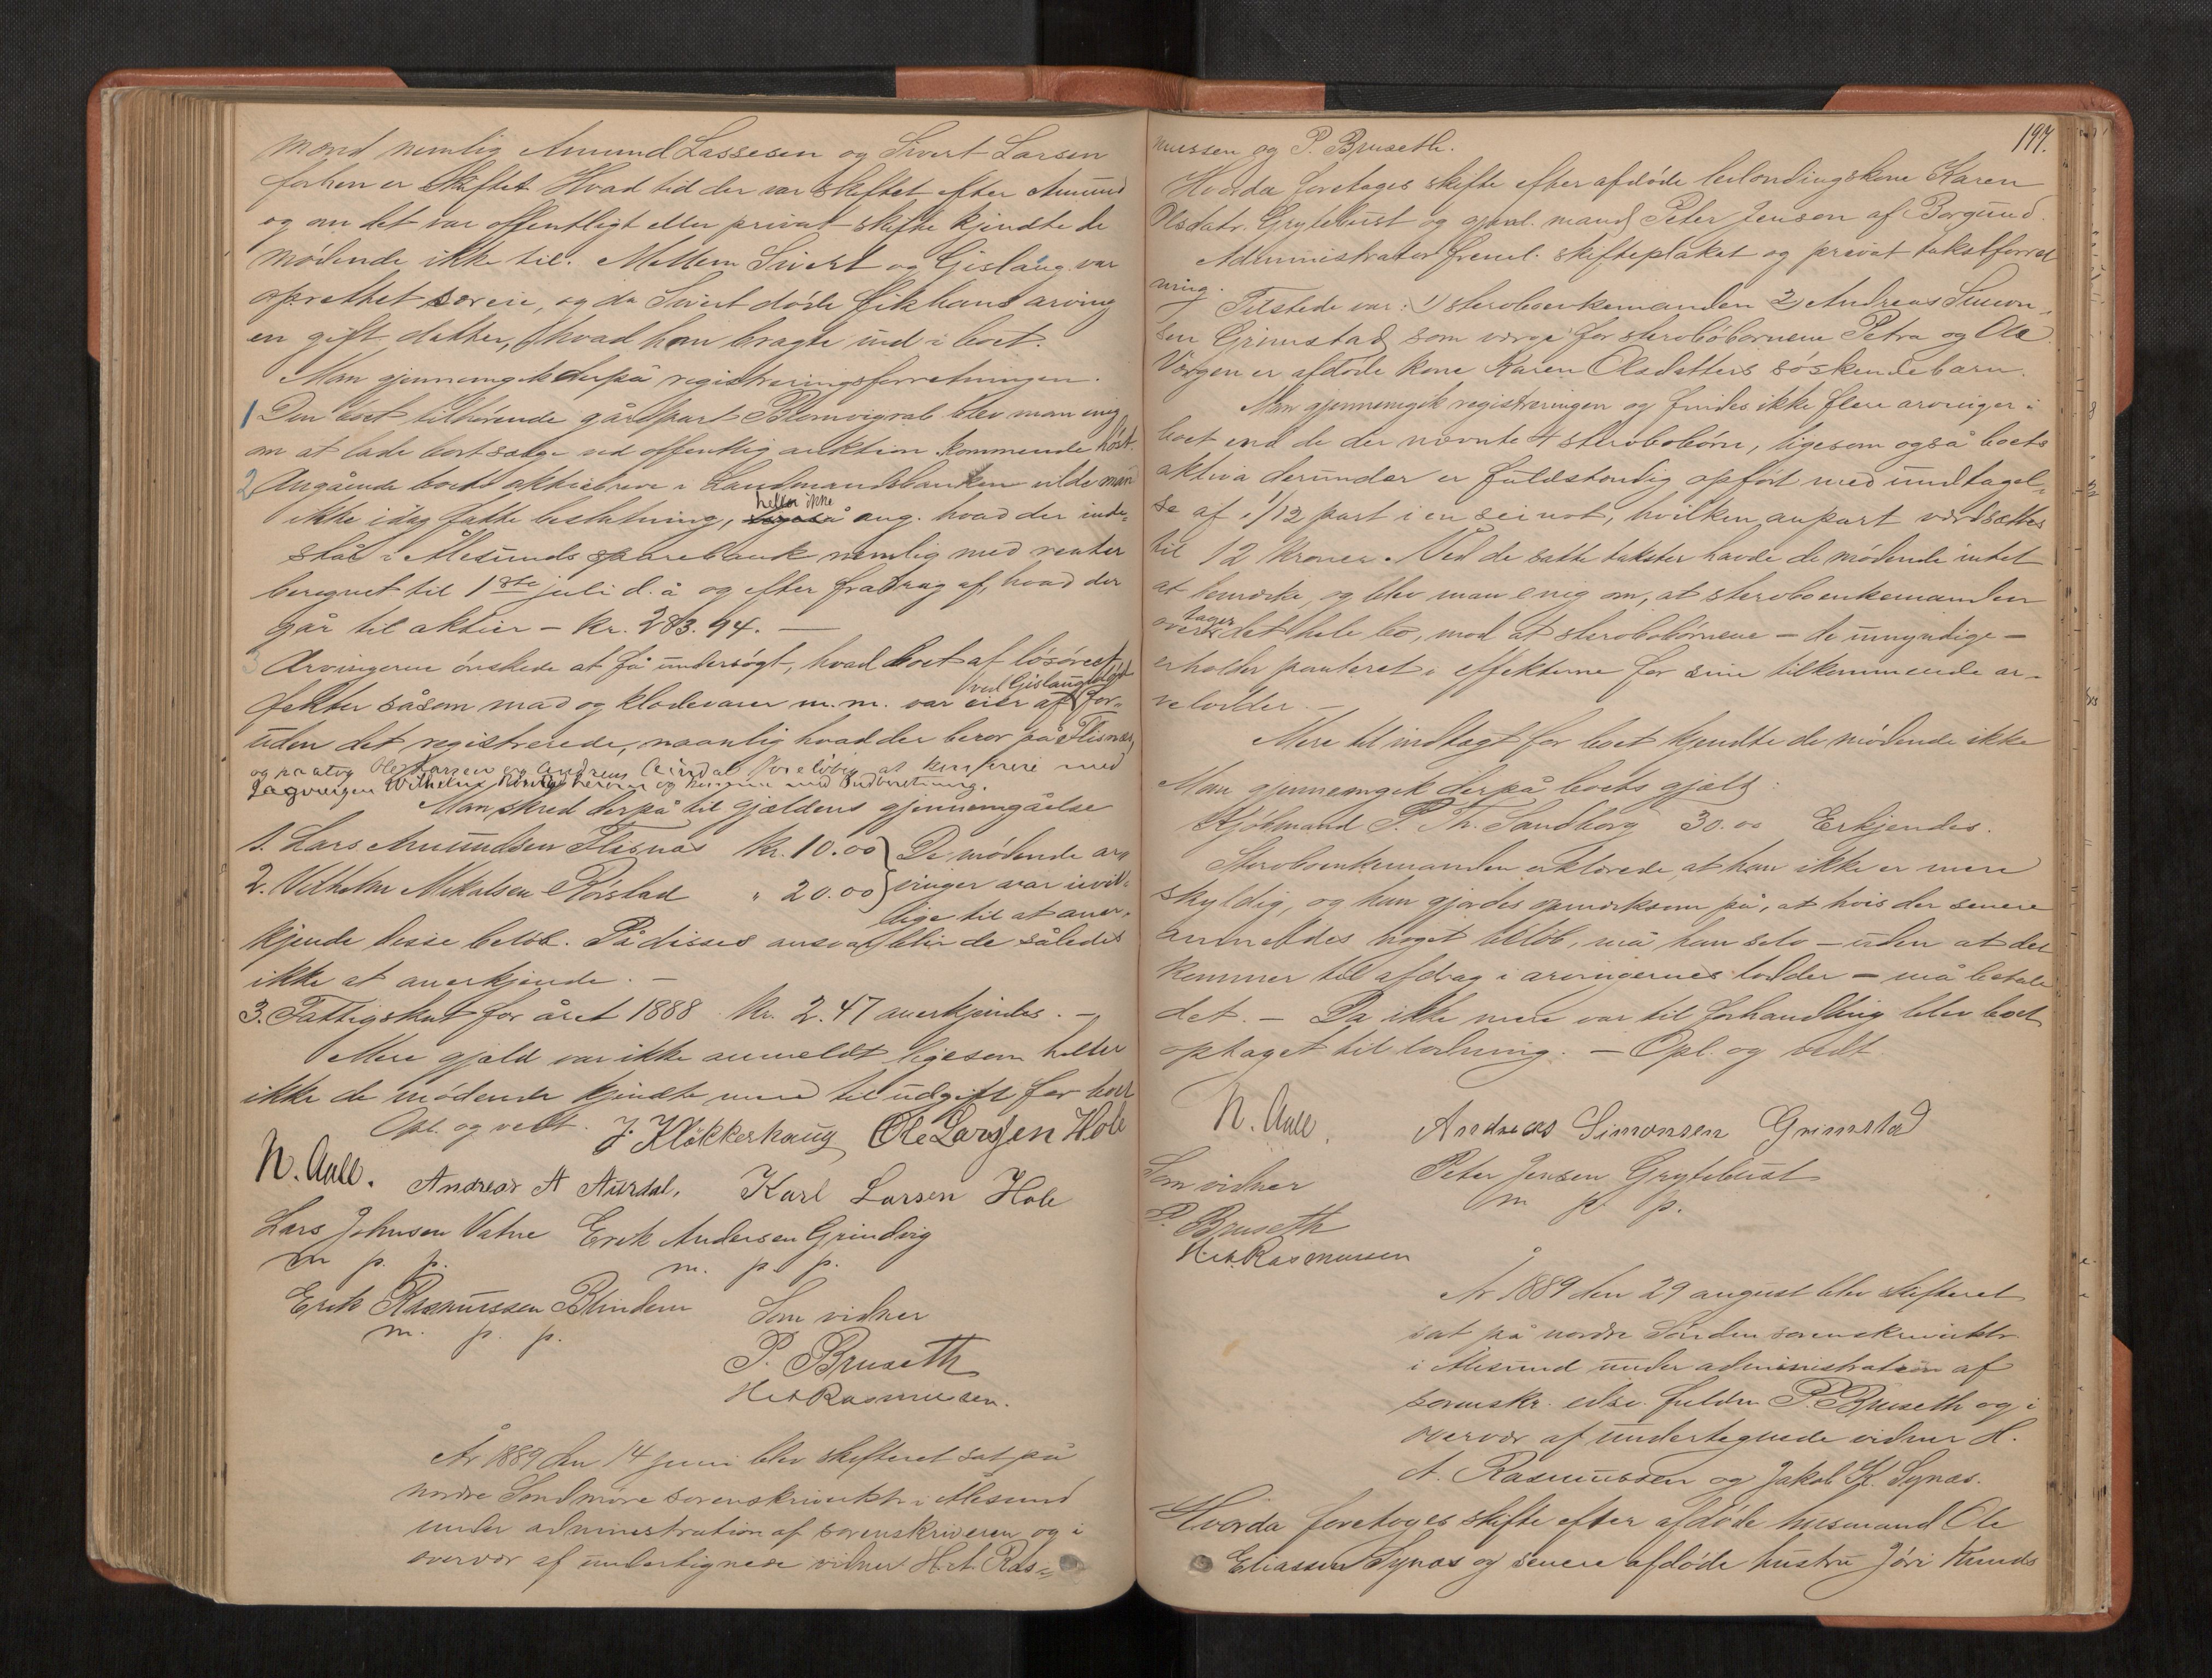 mænd nemlig Amund Lassesen og Sivert Larsen
forhen er skiftet. Hvad tid der var skiftet efter Amund
og om det var offentligt eller privat skifte kjendte de
mødende ikke til. Mellem Sivert og Gislaug var
oprettet særeie, og da Sivert døde fik hans arving
en gift datter, hvad han bragte ind i boet.
Man gjennemgik derpå registreringsforretningen.
1 Den boet tilhørende gårdpart Blomvigrab blev man enig
om at lade bortsælge ved offentlig auktion kommende høst.
2 Angående boets aktiebreve i Landmandsbanken vilde man
ikke idag fatte beslutning, heller ikke ang. hvad der inde-
står i Ålesunds sparebank nemlig med renter
beregnet til 1ste juli d. å og efter fradrag af, hvad der
går til aktier – kr. 283.94. —
3 Arvingerne ønskede at få undersøgt, hvad boet af løsøreef-
fekter såsom mad og klædevarer m. m. var eier af ved Gislaugs død for-
uden det registrerede, navnlig hvad der beror på Flisnæs,
og paatog Ole Larsen og Andreas Aurdal foreløbig at konferere med
Lagvergen Wilhelm og med Indberetning.
Man skred derpå til gjældens gjennemgåelse
1. Lars Amundsen Flisnæs kr. 10.00 } De mødende ar-
2. Vilhelm Mikalsen Rørstad " 20.00 } vinger var uvil-
lige til at aner-
kjende disse beløb. På disses ansvar blir de således
ikke at anerkjende. –
3. Fattigskat for året 1888 kr. 2.47 anerkjendes. –
Mere gjæld var ikke anmeldt ligesom heller
ikke de mødende kjendte mere til udgift for boet
Opl. og vedt. J. Kløkkerhaug Ole Larsen Hole
N. Aall. Andreas A Aurdal. Karl Larsen Hole
Lars Johnsen Vatne Erik Andersen Grindvig
m p. p. m. p. p.
Erik Rasmussen Blindem Som vidner
m. p. p.
P. Bruseth
H A Rasmussen.
År 1889 den 14 juni blev skifteret sat på
nordre Søndmøre sorenskriverktr. i Ålesund
under administration af sorenskriveren og i
overvær af undertegnede vidner H. A. Ras-
197.
mussen og P. Bruseth.
Hvorda foretoges skifte efter afdøde leilændingskone Karen
Olsdatr. Grytebust og gjenl. mand Peter Jensen af Borgund.
Administrator freml. skifteplakat og privat takstforret-
ning.
Tilstede var: 1) sterboenkemanden 2) Andreas Simon-
sen Grimstad som værge for sterbobørnene Petra og Ole.
Værgen er afdøde kone Karen Olsdatters søskendebarn.
Man gjennemgik registreringen og findes ikke flere arvinger i
boet end de der nævnte 4 sterbobørn, ligesom også boets
aktiva derunder er fuldstændig opført med undtagel-
se af 1/12 part i en seinot, hvilken anpart værdsættes
til 12 kroner. Ved de satte takster havde de mødende intet
at bemærke, og blev man enig om, at sterboenkemanden
overtager det hele bo, mod at sterbobørnene – de umyndige –
erholder panteret i effekterne for sine tilkommende ar-
velodder. –
Mere til indtægt for boet kjendte de mødende ikke
Man gjennemgik derpå boets gjæld:
Kjøbmand P. Th. Sandborg 30.00 Erkjendes.
Sterboenkemanden erklærede, at han ikke er mere
skyldig, og han gjordes opmærksom på, at hvis der senere
anmeldes noget beløb, må han selv – uden at det
kommer til afdrag i arvingernes lodder – må betale
det. – Da ikke mere var til forhandling blev boet
optaget til lodning. – Opl. og vedt.
N. Aall. Andreas Simonsen Grimstad
Som vidner Peter Jensen Grytebust
m p. p.
P. Bruseth
H A Rasmussen
År 1889 den 29 august blev skifteret
sat på nordre Søndm sorenskriverktr.
i Ålesund under administration af
sorenskr. edsv. fuldm P. Bruseth og i
overvær af undertegnede vidner H.
A. Rasmussen og Jakob K. Synæs.
Hvorda foretoges skifte efter afdøde husmand Ole
Eliassen Synæs og senere afdøde hustru Jøri Knuds